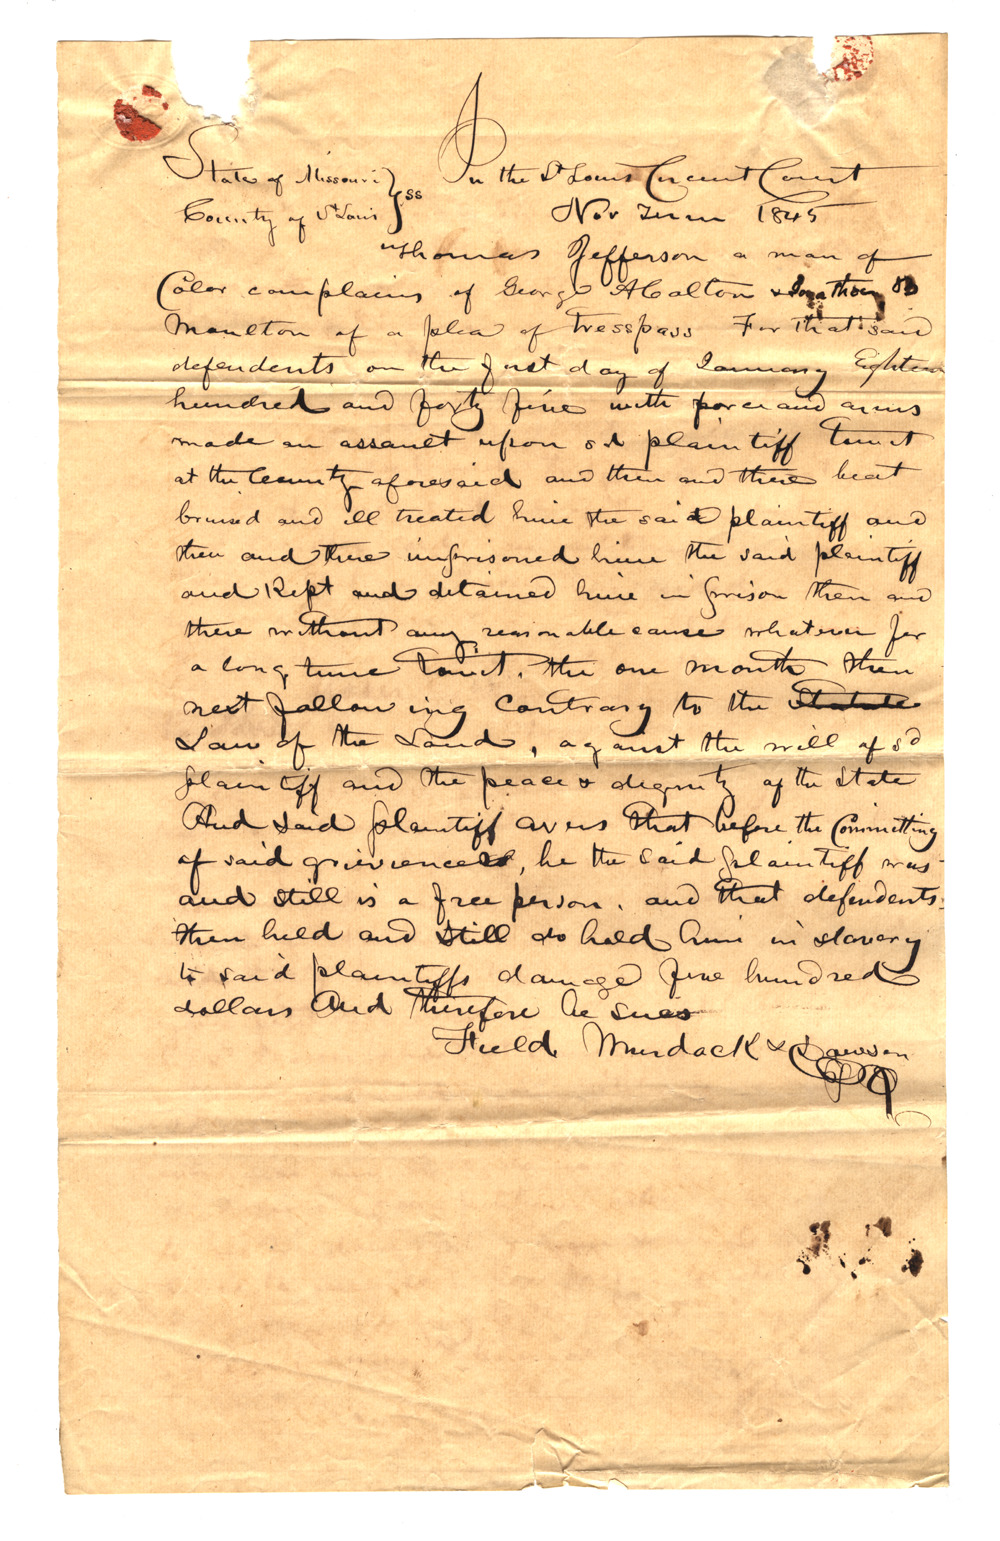 State of Missouri } ss In the St Louis Circuit Court
County of St Louis Nov Term 1845
Thomas Jefferson a man of
Color complains of George A Colton & Jonathan B
Moulton of a plea of tresspass For that said
defendents on the first day of January Eighteen
hundred and forty five with force and arms
made an assault upon sd plaintiff towit
at the County aforesaid and then and there beat
bruised and ill treated him the said plaintiff and
then and there imprisoned him the said plaintiff
and Kept and detained him in prison then and
there without any reasonable cause whatever for
a long time towit, the one month then
next following contrary to the Statute
Law of the Land, against the will of sd
plaintiff and the peace & dignity of the State
And said plaintiff avers that before the Committing
of said grieviences, he the said plaintiff was
and still is a free person, and that defendents
then held and still do hold him in slavery
to said plaintiffs damage five hundred
dollars And therefore he sues
Field, Murdock &